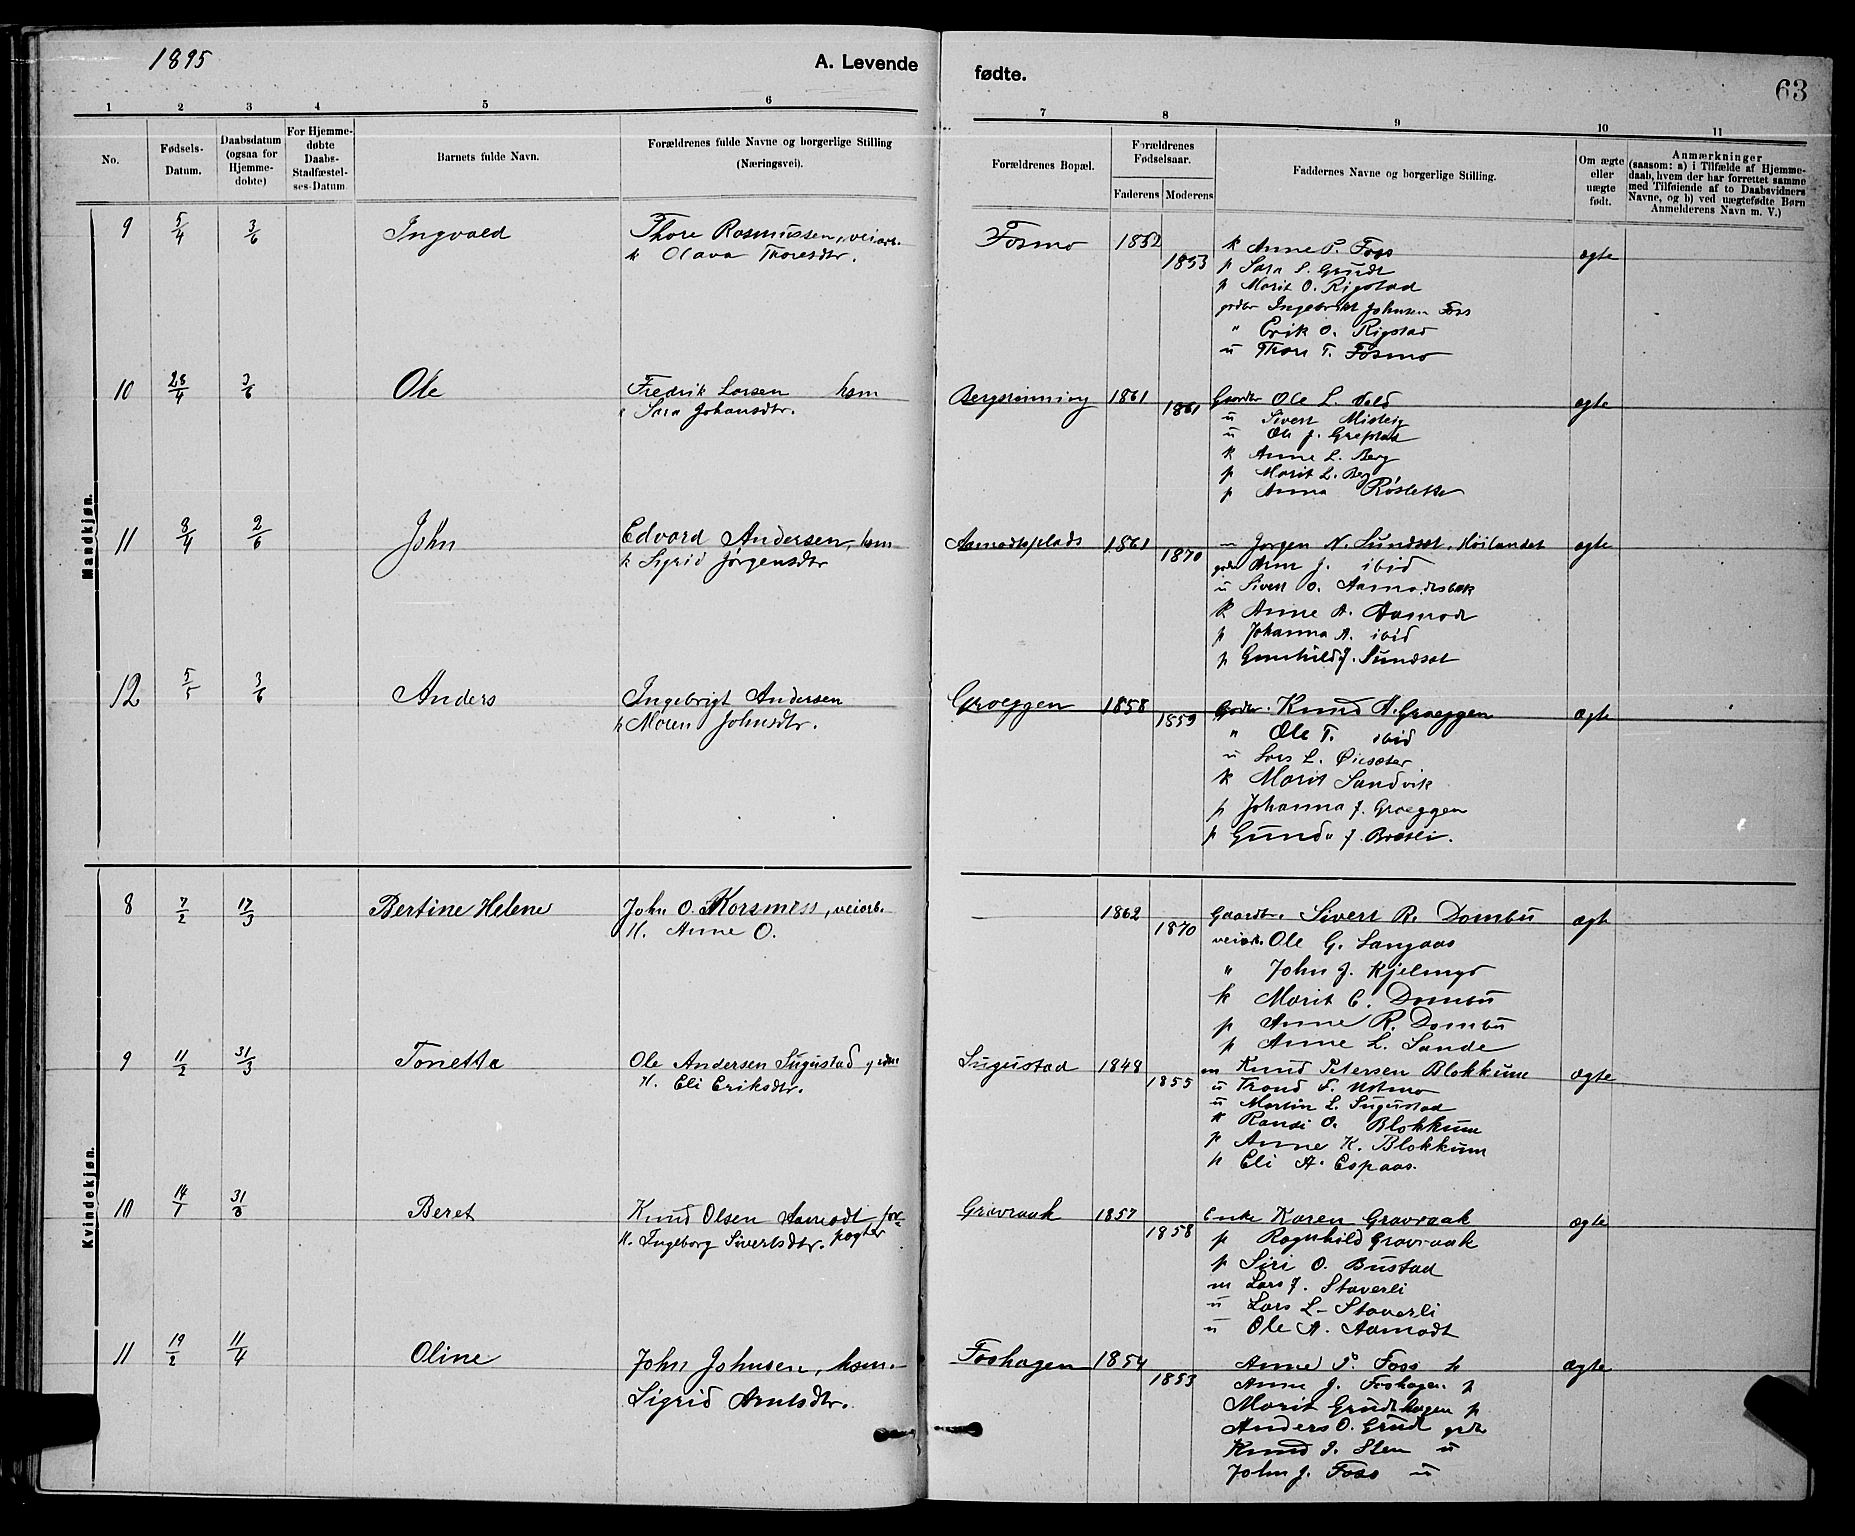 1895
A. Levende
fødte.
63
1 2 3 4 5 6 7 8 9 10 11
No.
Fødsels-
Datum.
Daabsdatum
(ogsaa for
Hjemme-
døbte)
For Hjemme-
døbte
Daabs-
Stadfæstel-
ses-Datum
Barnets fulde Navn.
Forældrenes fulde Navne og borgerlige Stilling
(Næringsvei).
Forældrenes Bopæl.
Forældrenes
Fødselsaar.
Faderens Moderens
Faddernes Navne og borgerlige Stilling.
Om ægte
eller
uægte
født.
Anmærkninger
(saasom: a) i Tilfælde af Hjemme-
daab, hvem der har forrettet samme
med Tilføiende af to Daabsvidners
Navne, og b) ved uægtefødte Børn
Anmelderens Navn m. V.)
Mandkjøn.
9 5/4 3/6 Ingvald Thore Rasmussen, veiarb. Fosmo 1852 k Anne P. Foss ægte
k Olava Thoresdtr. 1853 p Sara S. Grudt
p Marit O. Rigstad
grdbr Ingebrikt Johnsen Foss
" Erik O. Rigstad
u Thore T. Fosmo
10 28/4 3/6 Ole Fredrik Larsen hsm 1861 Gaardbr Ole L. ægte
k Sara Johansdtr. 1861 u Sivert
u Ole J.
k Anne L. Berg
p Marit L. Berg
p Anna
11 8/4 2/6 John Edvard Andersen, hsm Aamodtsplads 1861 Jørgen N. Sundset, Høilandet ægte
k Sigrid Jørgensdtr 1870 J. ibid
u Sivert O.
k Anne A. Aamodt
p Johanna A. ibid
p Gunhild J. Sundset
12 5/5 3/6 Anders Ingebrigt Andersen Groeggen 1858 grdbr. Knud A. Groeggen ægte
k Maren Johnsdtr. 1859 " Ole T. ibid
u Lars L. Øiesæter
k Marit Sandvik
p Johanna J. Groeggen
p Gunda J. Brœsli.
Kvindekjøn.
8 7/2 17/3 Bertine Helene John O. Korsmess, veiarb. — 1862 Gaardbr. Sivert R. Dombu ægte
H. Anne O. 1870 veiarb. Ole G. Langaas
" John J. Kjelmyr
k Marit C. Dombu
p Anne R. Dombu
p Anne L. Sande
9 11/2 31/3 Tonetta Ole Andersen Sugustad Sugustad 1848 m Knud Petersen Blokkum ægte
H. Eli Eriksdtr. 1855 u Trond F.
u Martin L. Sugustad
k Randi O. Blokkum
p Anne K. Blokkum
p Eli A. Espaas.
10 14/1 31/3 Beret Knud Olsen Aamodt for- Gravraak 1857 Enke Karen Gravraak ægte
H. Ingeborg Sivertsdtr. pagter 1858 p Ragnhild Gravraak
p Siri O. Bustad
m Lars J. Staverli
u Lars L. Staverli
u Ole A. Aamodt
11 19/2 11/4 Oline John Johnsen, hsm. Foshagen 1854 Anne P. Foss k ægte
Sigrid Arntsdtr. 1853 Anne J. Foshagen p
Marit Grudthagen p
Anders O. Grudt grdbr
Knud I. Sten u
John J. Foss u